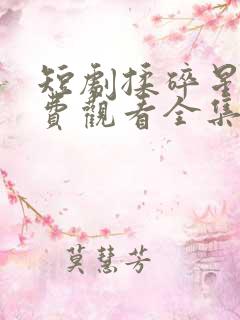 短劇揉碎星
費觀看全集
莫慧芳